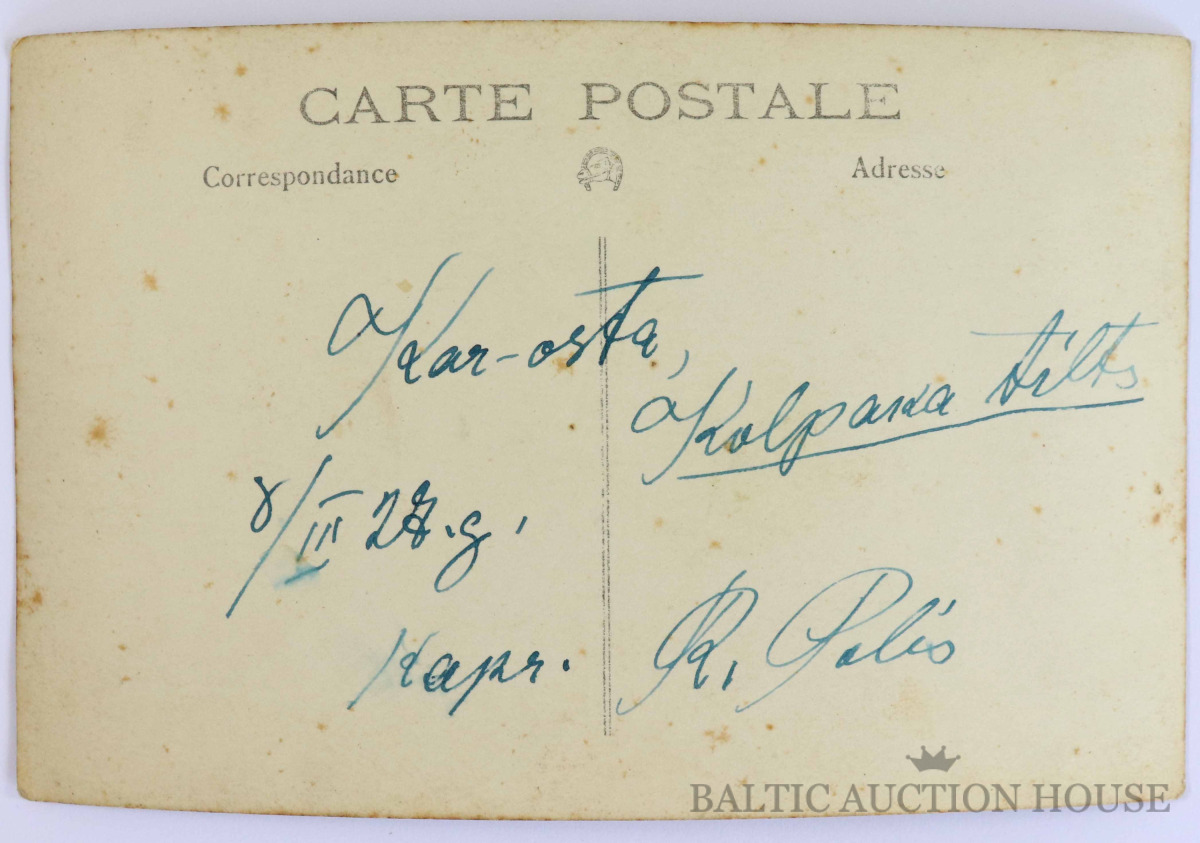 CARTE POSTALE
Correspondance
Adresse
Kar-osta,
Kolpaka tilts
8/III 28.g.
Kapr. R. Polis
BALTIC AUCTION HOUSE